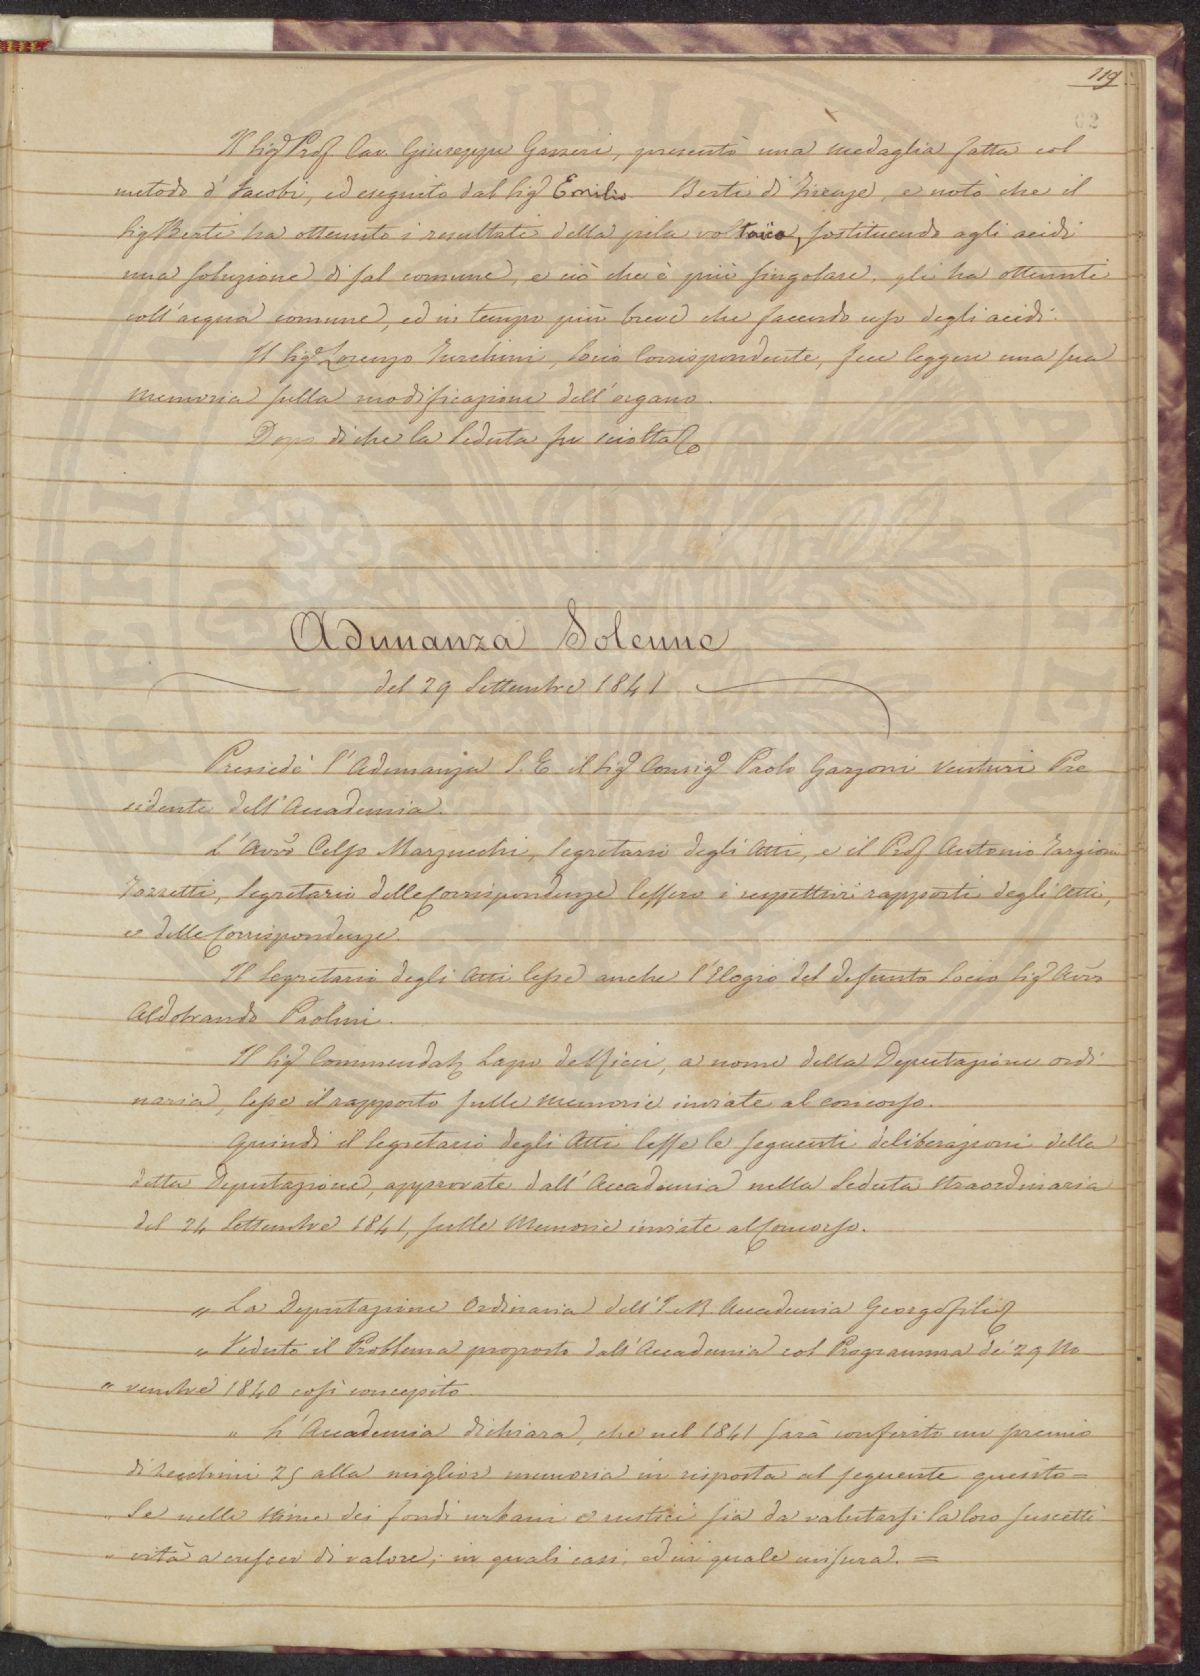 119
62
Il Sig.r Prof. Cav. Giuseppe Gazzeri, presentò una medaglia fatta col
metodo d'Jacobi, ed eseguita dal Sig.r Emilio Berti di Firenze, e notò che il
Sig. Berti ha ottenuto i resultati della pila voltaica, sostituendo agli acidi
una soluzione di sal comune, e ciò che è più singolare, gli ha ottenuti
coll'acqua comune, ed in tempo più breve che facendo uso degli acidi.
Il Sig.r Lorenzo Turchini, Socio Corrispondente, fece leggere una sua
memoria sulla modificazione dell'organo.
Dopo di che la Seduta fu sciolta
Adunanza Solenne
del 29 Settembre 1841
Pressiedè l'Adunanza S. E. il Sig.r Consig.r Paolo Garzoni Venturi Pre
sidente dell'Accademia.
L'Avv.o Celso Marzucchi, Segretario degli Atti, e il Prof. Antonio Targioni
Tozzetti, Segretario delle Corrispondenze lessero i respettivi rapporti degli Atti,
e delle Corrispondenze.
Il Segretario degli Atti lesse anche l'Elogio del defunto Socio Sig.r Avv.o
Aldobrando Paolini.
Il Sig.r Commendat. Lapo de Ricci, a nome della Deputazione ordi
naria, lesse il rapporto sulle memorie inviate al concorso.
Quindi il Segretario degli Atti lesse le seguenti deliberazioni della
detta Deputazione, approvate dall'Accademia nella Seduta straordinaria
del 24 Settembre 1841, sulle Memorie inviate al Concorso.
„ La Deputazione Ordinaria dell'I. e R. Accademia Georgofili
„ Veduto il Problema proposto dall'Accademia col Programma de' 29 No
„ vembre 1840 così concepito.
„ L'Accademia dichiara, che nel 1841 sarà conferito un premio
di Zecchini 25 alla miglior memoria in risposta al seguente quesito =
„ Se nelle stime dei fondi urbani e rustici sia da valutarsi la loro suscetti
„ vità a crescer di valore; in quali casi, ed in quale misura. =